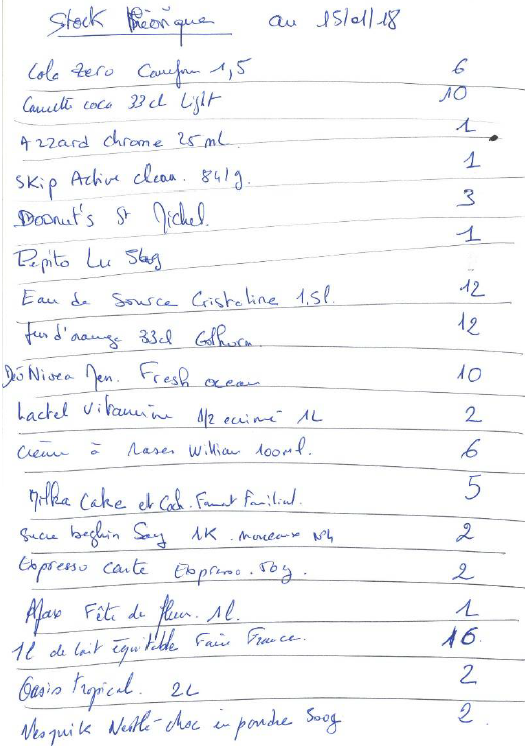 Stock théorique au 15/01/18
Cola zero Carrefour 1,5 6
Canette coca 33cl Light 10
Azzard chrome 25 mL. 1
Skip Active clean. 841g. 1
Doonut's St Michel. 3
Pepito Lu 1
Eau de Source Cristaline 1,5l. 12
Jus d'orange 33cl 12
Déo Nivea Men. Fresh ocean 10
Lactel Vitamine 1/2 écrémé 1L 2
Crème à raser William 100ml. 6
Milka Cake et Format Familial. 5
Sucre beghin Say 1K. morceaux N°4 2
Espresso carte Espresso. 50g. 2
Ajax Fête de fleur. 1l. 1
1l de lait équitable Faire France. 16
Oasis tropical. 2L 2
Nesquik Nestlé-choc en poudre 500g 2